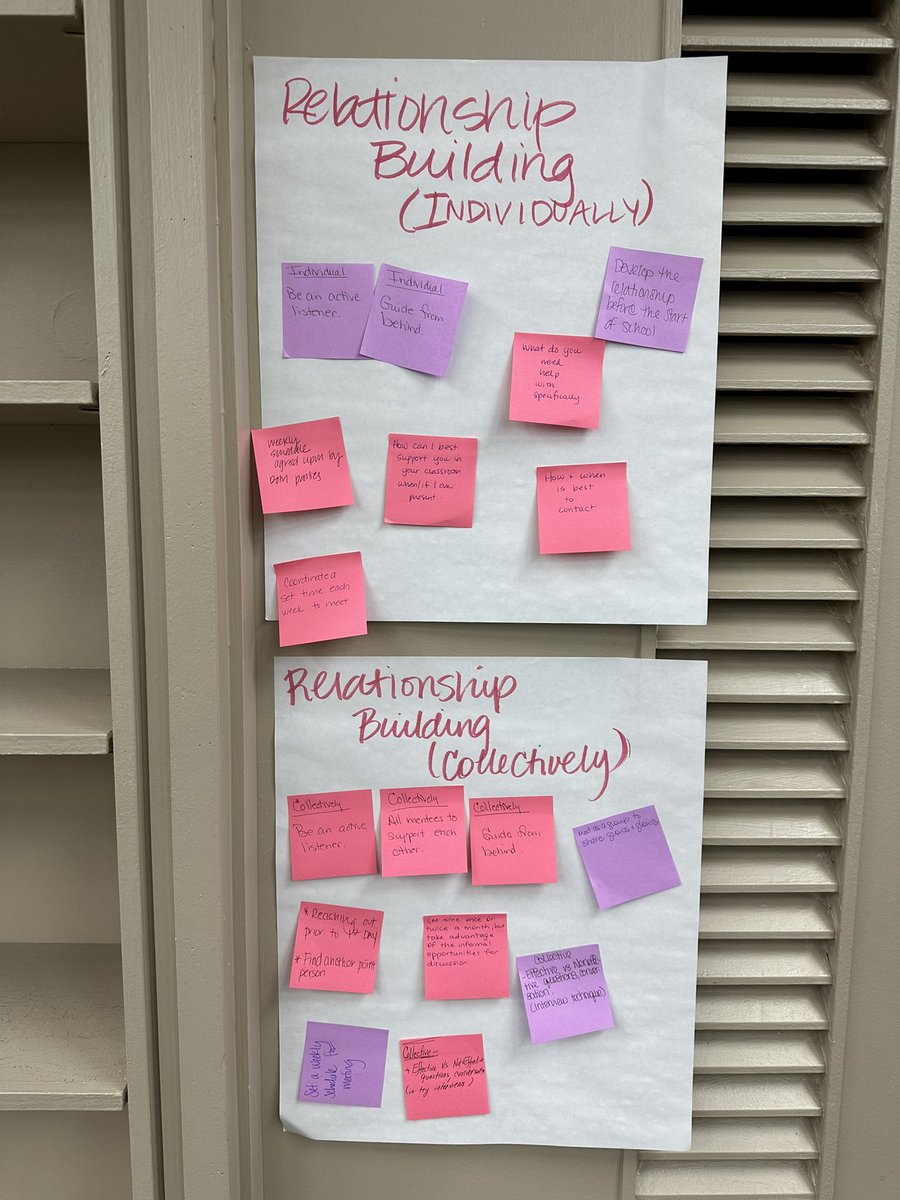 Relationship
Building
(INDIVIDUALLY)
Individual
Be an active
listener.
Individual
Guide from
behind.
Develop the
relationship
before the start
of school
What do you
need
help
with
specifically
weekly
agreed upon by
both parties
How can I best
support you in
your classroom
when/if I am
present.
How + when
is best
to
contact
Coordinate a
set time each
week to meet
Relationship
Building
(Collectively)
Collectively
Be an active
listener.
Collectively
All mentees to
support each
other.
Collectively
Guide from
behind.
Meet as a group to
share grows + glows
* Reaching out
prior to 1st DAY
* Find another point
person
Set time once or
twice a month, but
take advantage
of the informal
opportunities for
discussion
Collective
- Effective vs
questions, conver-
sation.
(interview technique)
Set a weekly
schedule for
meeting
Collective -
+ Effective vs
questions